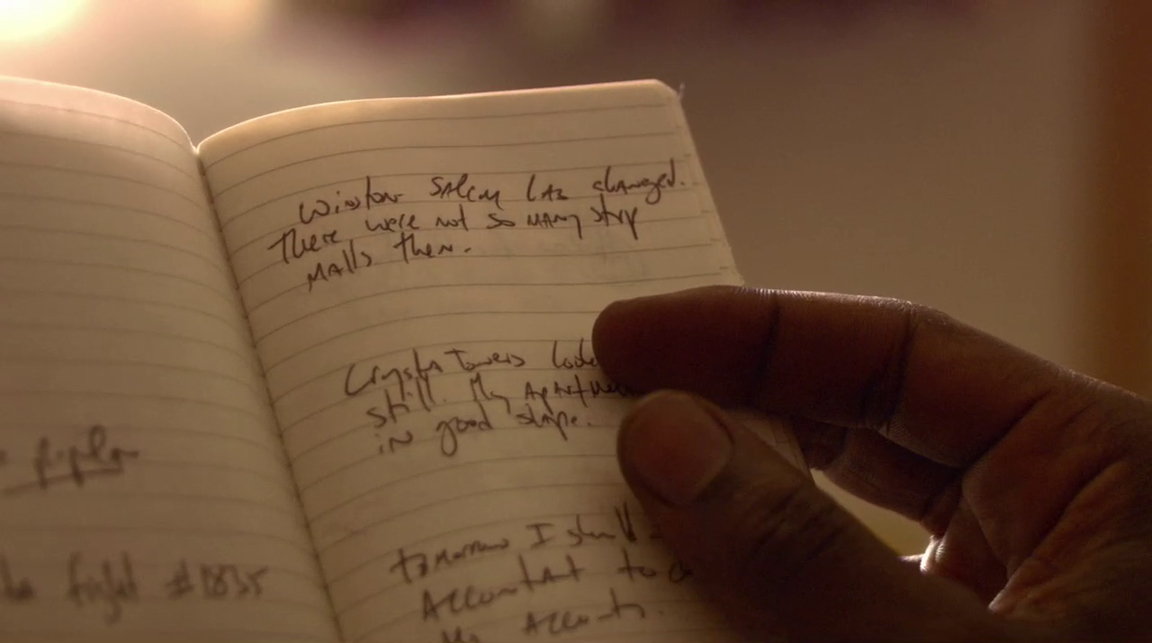 fight #1835
Winston Salem has changed.
There were not so many strip
malls then.
Crystal Towers
still. My
in good shape.
tomorrow I
Accountant to
my Accounts.